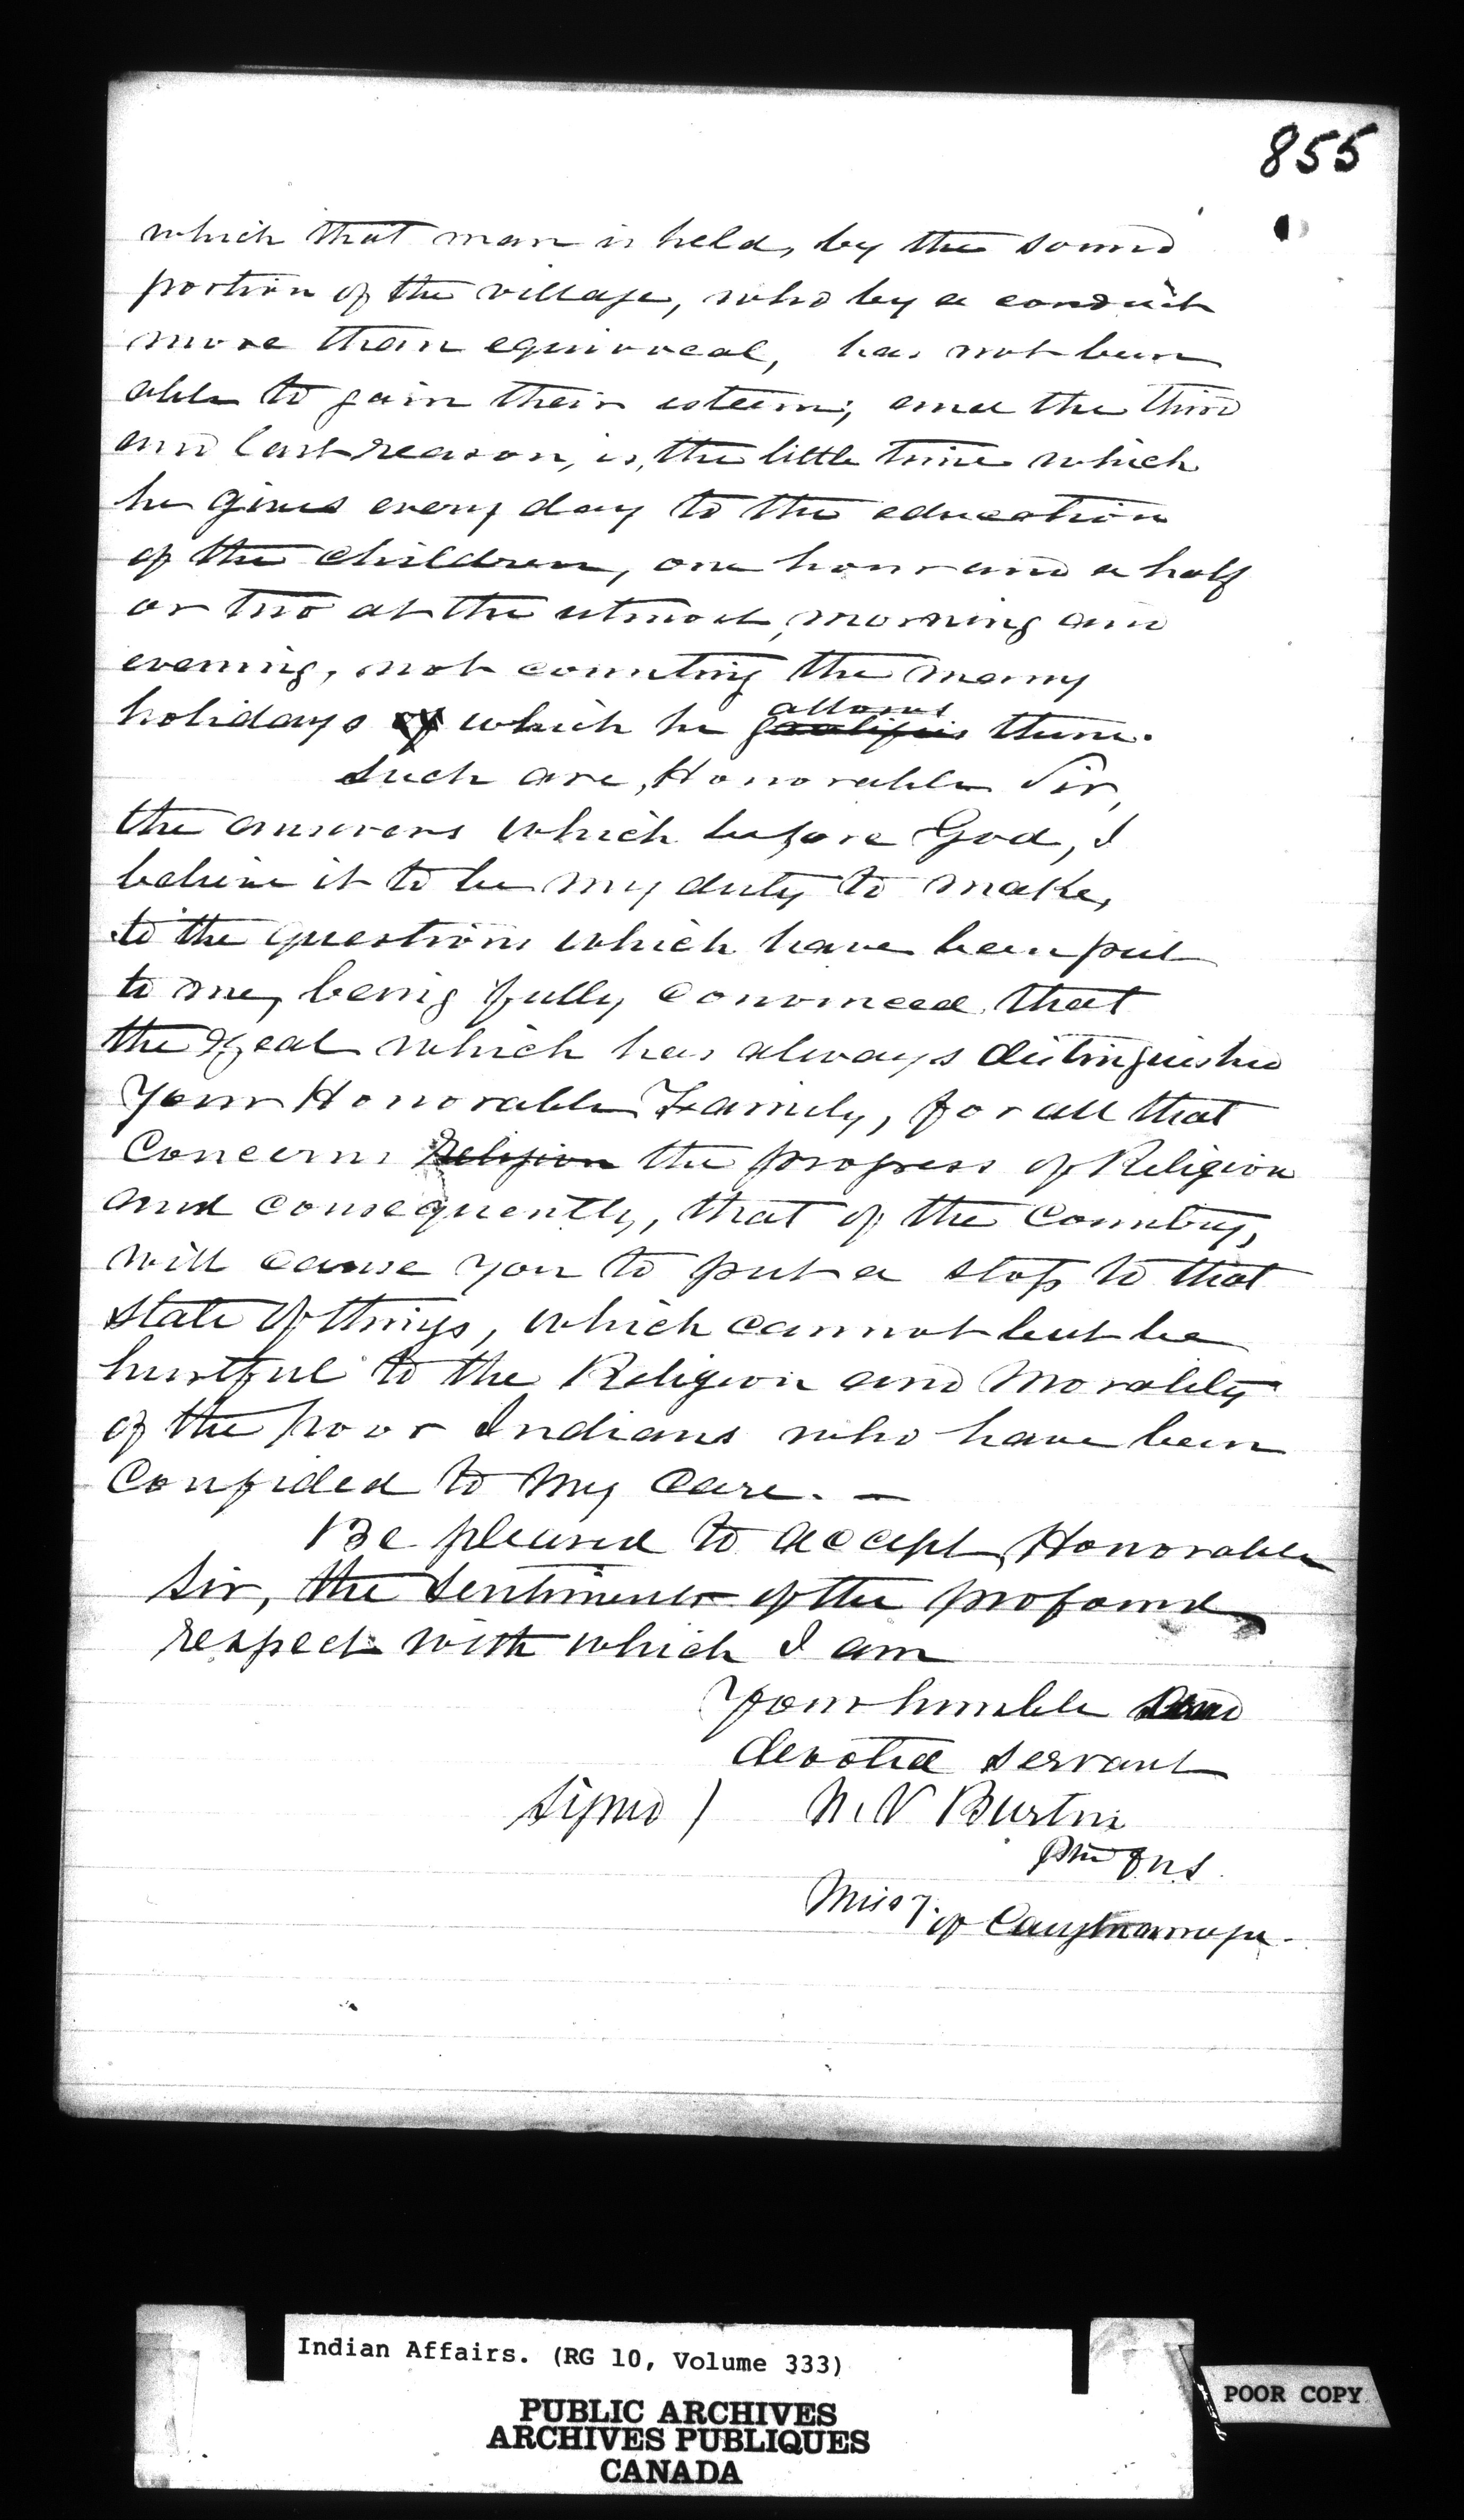 855
which that man is held, by the sound
portion of the village, who by a conduct
more than equivocal, has not been
able to gain their esteem; and the third
and last reason, is, the little time which
he gives every day to the education
of the children, one hour and a half
or two at the utmost, morning and
evening, not counting the many
allows
holidays of which he them.
Such are, Honorable Sir,
the answers which before God, I
believe it to be my duty to make,
to the questions which have been put
to me, being fully convinced that
the zeal which has always distinguished
Your Honorable Family, for all that
Concerns Religion the progress of Religion
and consequently, that of the Country,
will cause you to put a stop to that
state of things, which cannot but be
hurtful to the Religion and Morality
of the poor Indians who have been
Confided to my Care. —
Be pleased to accept, Honorable
Sir, the Sentiments of the profound
respect with which I am
Your humble and
devoted servant
Signed ) N. V Burtin
Ptre O M I
Missy. of Caughnawaga.
Indian Affairs. (RG 10, Volume 333)
PUBLIC ARCHIVES
ARCHIVES PUBLIQUES
CANADA
POOR COPY